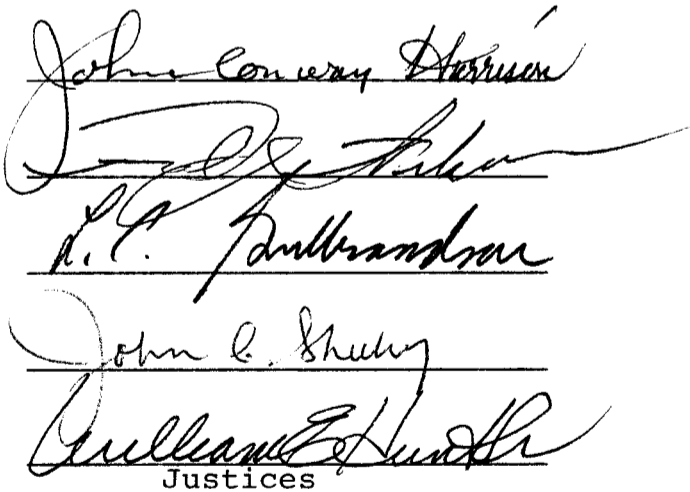 John Conway Harrison
L. C. Gulbrandson
John C. Sheehy
William E. Hunt Sr.
Justices